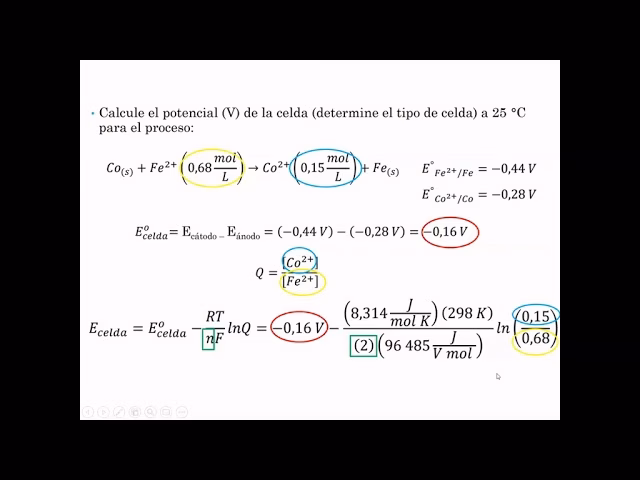 • Calcule el potencial (V) de la celda (determine el tipo de celda) a 25 °C
para el proceso:
Co(s) + Fe²⁺ (0,68 mol/L) → Co²⁺ (0,15 mol/L) + Fe(s)
E°Fe²⁺/Fe = −0,44 V
E°Co²⁺/Co = −0,28 V
E°celda = Ecátodo − Eánodo = (−0,44 V) − (−0,28 V) = −0,16 V
Q = [Co²⁺]/[Fe²⁺]
Ecelda = E°celda − RT/nF lnQ = −0,16 V − (8,314 J/mol K)(298 K)/(2)(96 485 J/V mol) ln(0,15/0,68)